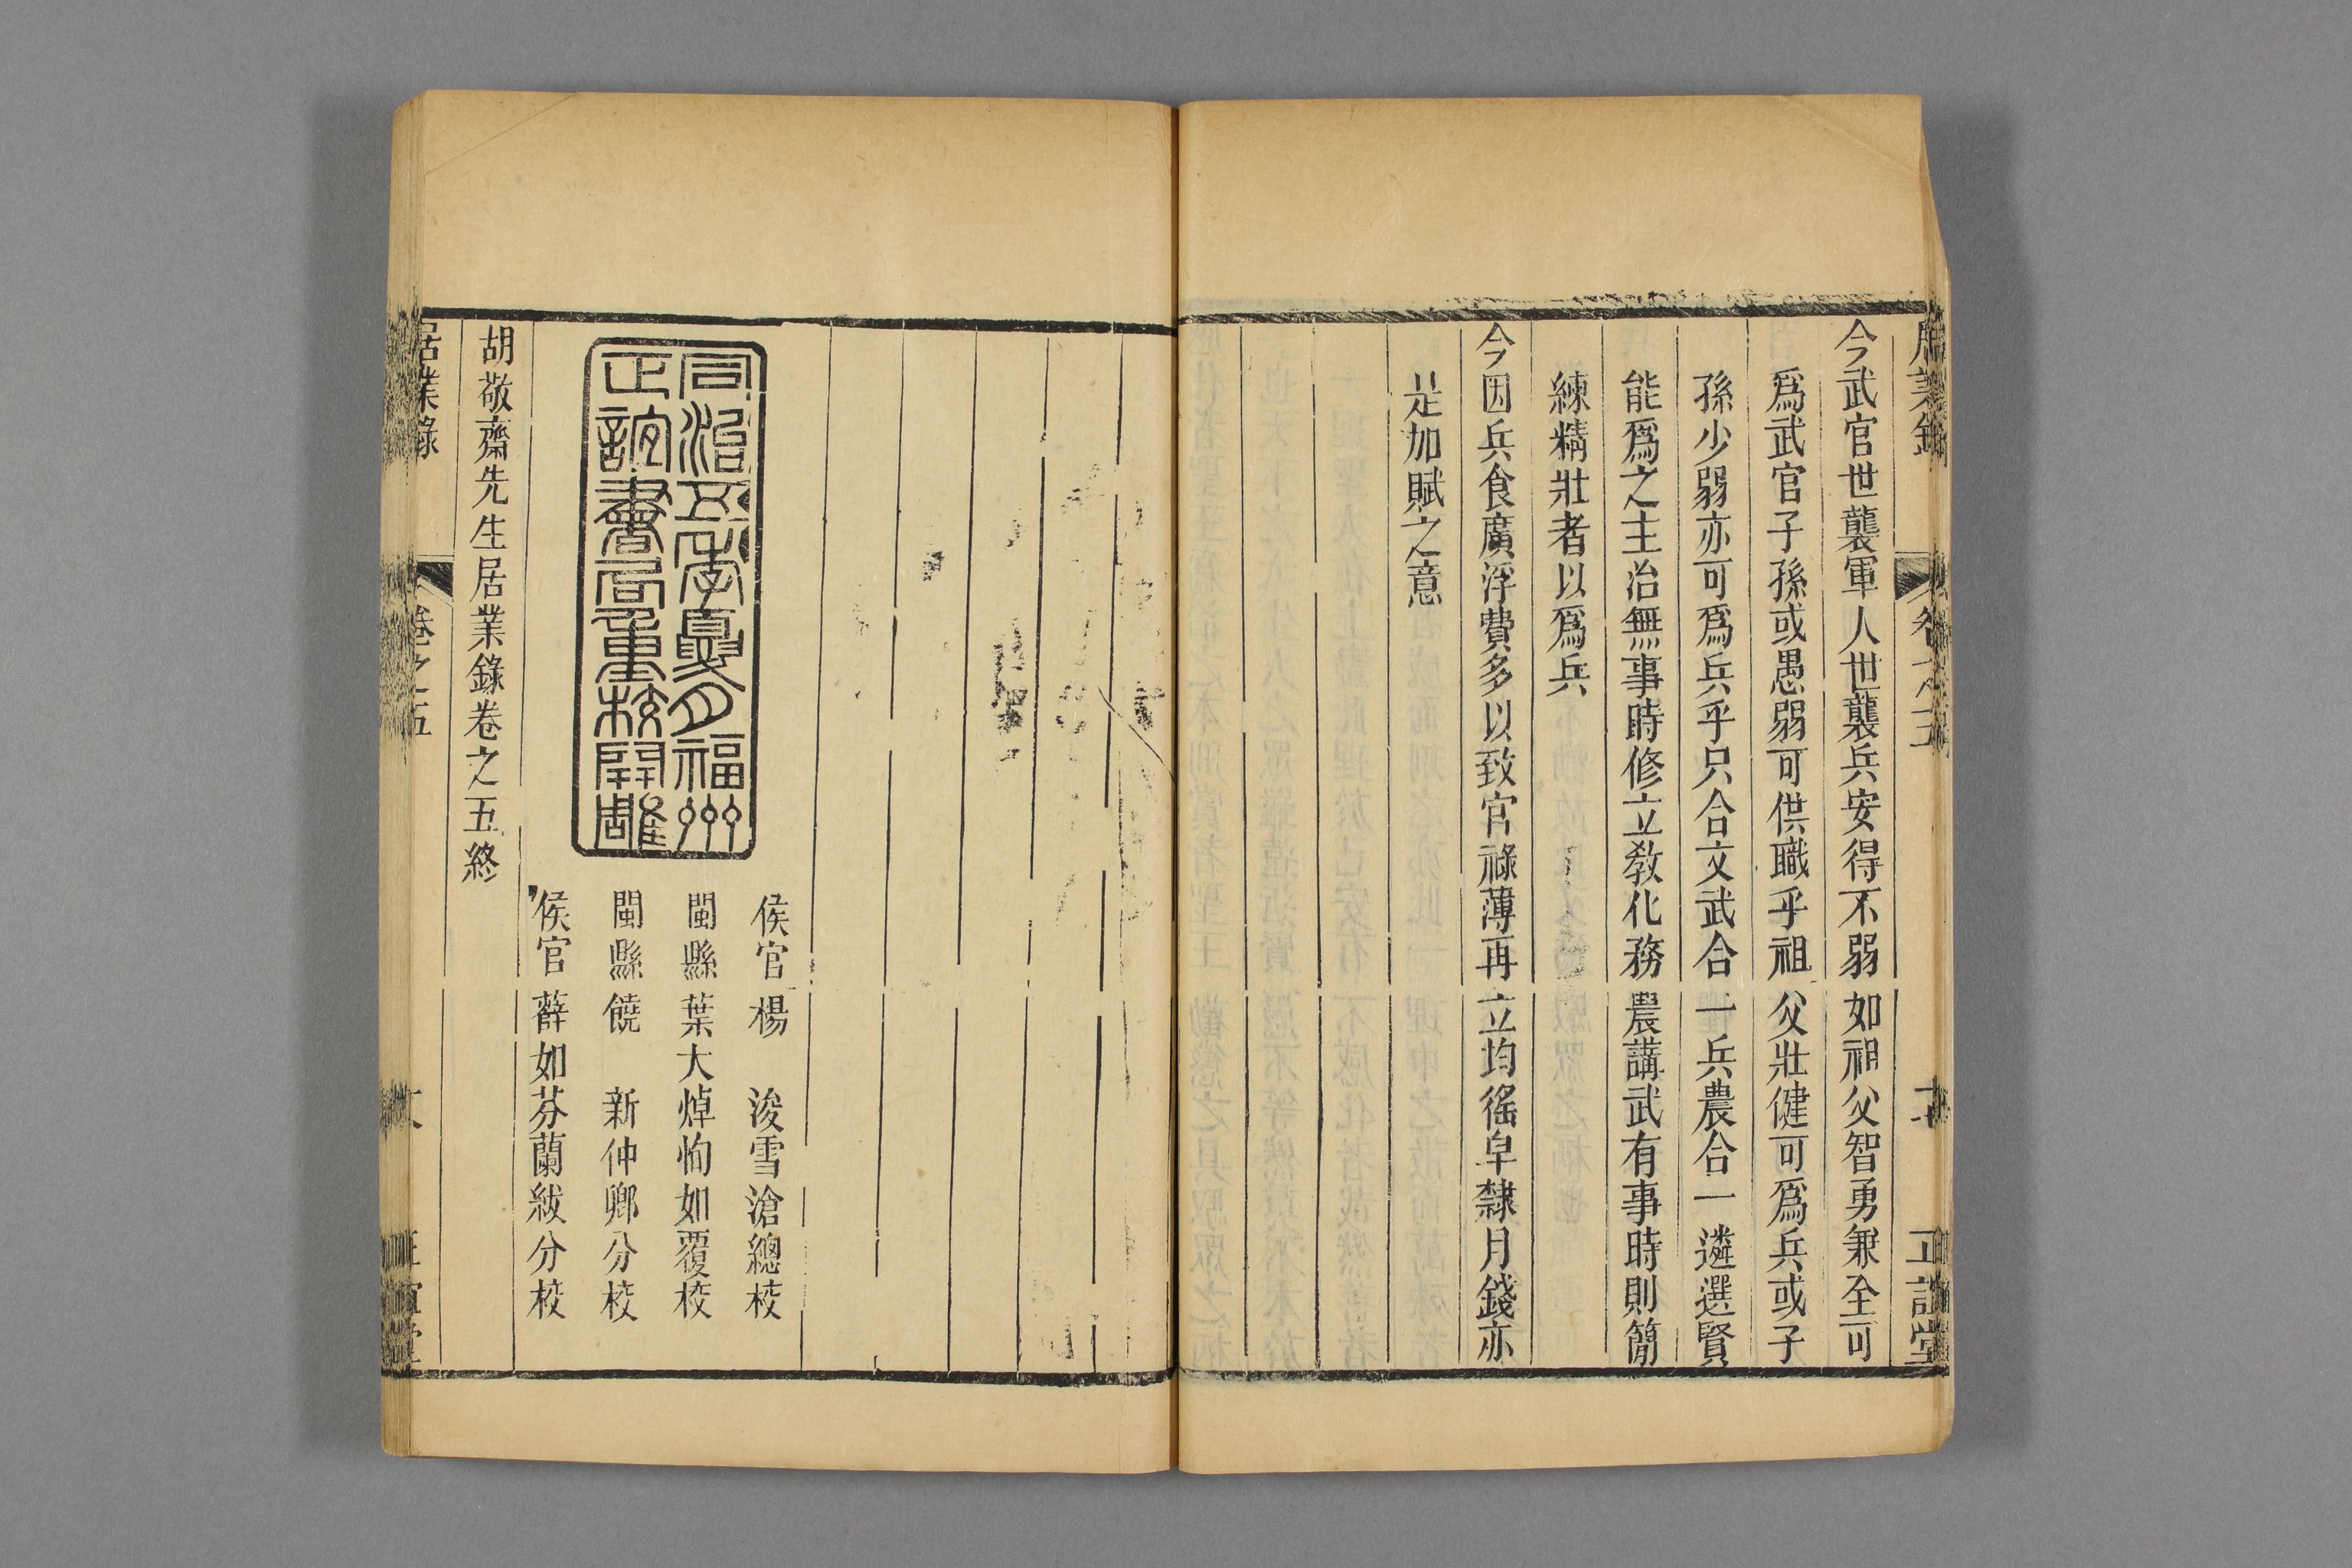 居業錄 卷之五 正誼堂
今武官世襲軍人世襲兵安得不弱如祖父智勇兼全可
爲武官子孫或愚弱可供職乎祖父壯健可爲兵或子
孫少弱亦可爲兵乎只合文武合一兵農合一遴選賢
能爲之主治無事時修立教化務農講武有事時則簡
練精壯者以爲兵
今因兵食廣浮費多以致官祿薄再立均徭皁隸月錢亦
是加賦之意
同治五年夏月福州
正誼書局重校開雕
侯官楊 浚雪滄總校
閩縣葉大焯恂如覆校
閩縣饒 新仲卿分校
侯官薛如芬蘭紱分校
胡敬齋先生居業錄卷之五終
居業錄 卷之五 正誼堂